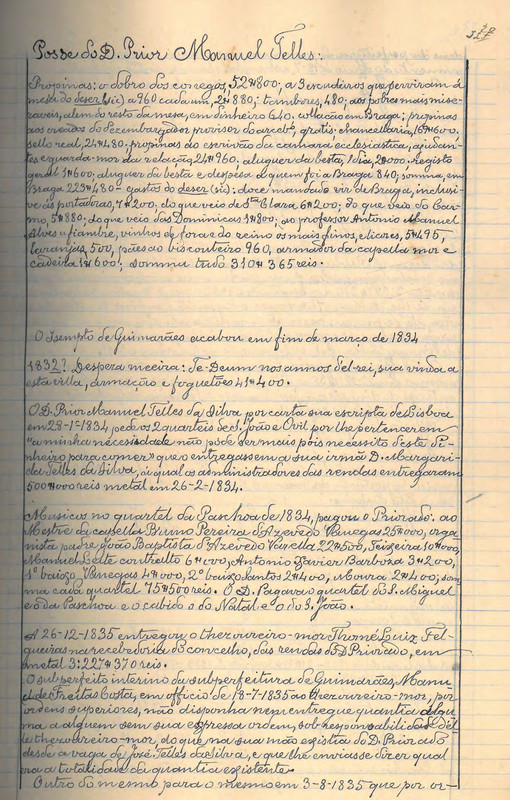 Posse do D. Prior Manuel Telles:
Propinas: o dobro dos conegos, 52#800; a 3 escudeiros que serviram á
mesa do deser (sic) a 960 cada um, 2#880; tambores, 480; aos pobres mais mise-
raveis, alem do resto da mesa, em dinheiro 640. Collação em Braga: propinas
aos creados do dezembargador provisor do arcebº, gratis; chancellaria, 16#600.
sello real, 24#480, propinas ao escrivão da camara ecclesiastica, ajudan-
tes e guarda-mor da relação 24#960, aluguer da besta, 1 dia, 2#000. registo
geral 1#600; aluguer da besta e despesa a quem foi a Braga 840; somma, em
Braga 223#480 - gastos do deser (sic): doce mandado vir de Braga, inclusi-
vé ás portadoras, 7#200. do que veio de Sta Clara 6#200; do que veio do Car-
mo, 5#880; do que veio das Dominicas 1#800; ao professor Antonio Manuel
Alves o fiambre, vinhos de fora e do reino os mais finos, e licores, 5#495,
laranjas, 500, pães ao biscouteiro 960, armador da capella mor e
cadeira 1#600; somma tudo 310#365 reis.
O Isempto de Guimarães acabou em fim de março de 1834
1832? Despesa meeira: Te-Deum nos annos d'el-rei, sua vinda a
esta villa, armação e foguetões 41#400.
O D. Prior Manuel Telles da Silva, por carta sua escripta de Lisboa
em 28-1-1834 pede os 2 quarteis de S. João e Ovil por lhe pertencerem
"a minha necesidade não póde ser mais pois necessito d'este di-
nheiro para comer" que o entregassem a sua irmã D. Margari-
da Telles da Silva, á qual os administradores das rendas entregaram
500#000 reis metal em 26-2-1834.
Musicos no quartel da Paschoa de 1834, pagou o Priorado: ao
Mestre da capella Bruno Pereira d'Azevedo Venegas 25#000, orga-
nista padre João Baptista d'Azevedo Varella 22#500, Teixeira 10#000,
Manuel Leite contralto 6#000, Antonio Xavier Barboza 3#200,
1º baixo Venegas 4#000, 2º baixo Santos 2#400, Moura 2#400; som-
ma cada quartel 75#500 reis. O D. Pagavão quartel do S. Miguel
e o da Paschoa e o cabido o do Natal e o do S. João.
A 26-12-1835 entregou o thezoureiro-mor Thomé Luiz Fel-
gueiras na recebedoria do concelho, das rendas do D. Priorado, em
metal 3:227#370 reis.
O subperfeito interino da subperfeitura de Guimarães, Manu-
el de Freitas Costa, em officio de 18-7-1835 ao thezoureiro-mor, por
ordens superiores, não disponha nem entregue quantia algu-
ma a alguem sem sua expressa ordem, sob responsabilidade d'el-
le thezoureiro-mor, do que na sua mão existia do D. Priorado
desde a vaga de José Telles da Silva, e que lhe enviasse dizer qual
era a totalidade da quantia existente.
Outro do mesmo para o mesmo em 3-8-1835 que por or-